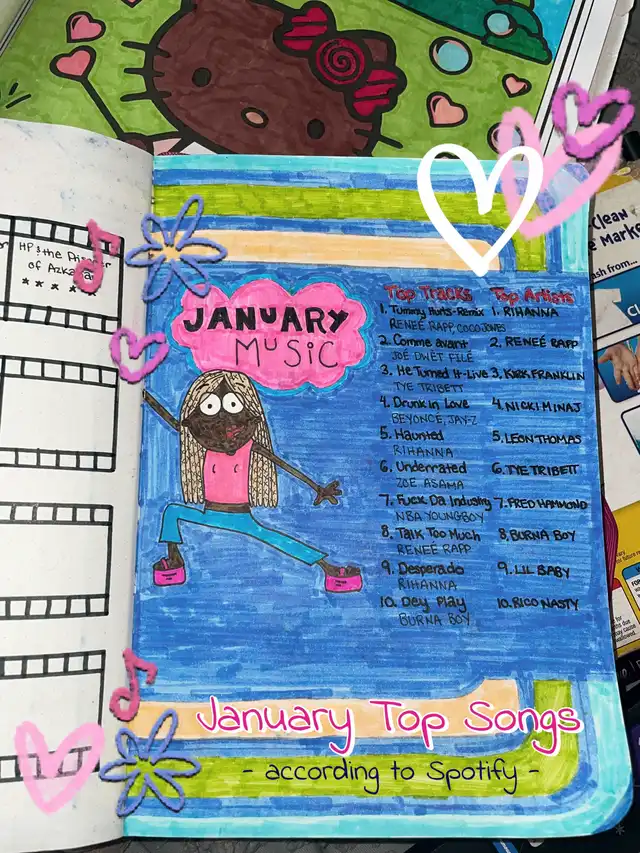 HP & the Prisoner
of Azkaban
* * * * *
JANUARY
MUSIC
Top Tracks
1. Tummy Hurts-Remix
RENEÉ RAPP, COCO JONES
2. Comme avant
JOÉ DWÈT FILÉ
3. He Turned It-Live
TYE TRIBETT
4. Drunk in Love
BEYONCE, JAY-Z
5. Haunted
RIHANNA
6. Underrated
ZOE ASAMA
7. Fuck Da Industry
NBA YOUNGBOY
8. Talk Too Much
RENEÉ RAPP
9. Desperado
RIHANNA
10. Dey Play
BURNA BOY
Top Artists
1. RIHANNA
2. RENEÉ RAPP
3. KIRK FRANKLIN
4. NICKI MINAJ
5. LEON THOMAS
6. TYE TRIBETT
7. FRED HAMMOND
8. BURNA BOY
9. LIL BABY
10. RICO NASTY
January Top Songs
- according to Spotify -
-Clean
Marke
ash from...